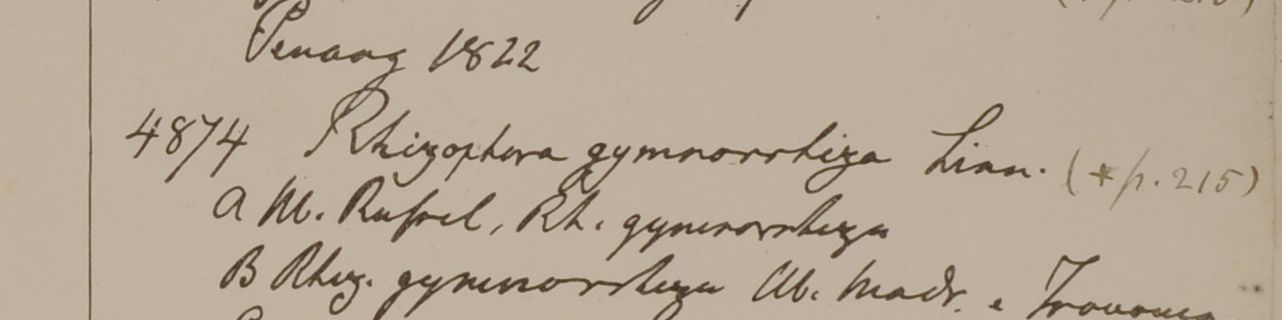 Penang 1822
4874 Rhizophora gymnorrhiza Linn. (*p. 215)
a Hb. Russel, Rh. gymnorrhiza
B Rhiz. gymnorrhiza Hb. Madr. e